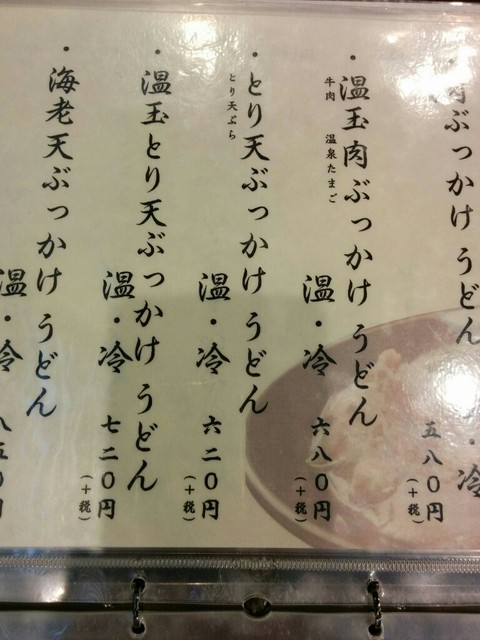 肉ぶっかけうどん
・冷
五八〇円
(+税)
・温玉肉ぶっかけうどん
牛肉 温泉たまご
温・冷
六八〇円
(+税)
・とり天ぶっかけうどん
とり天ぷら
温・冷
六二〇円
(+税)
・温玉とり天ぶっかけうどん
温・冷
七二〇円
(+税)
・海老天ぶっかけうどん
温・冷
八五〇円